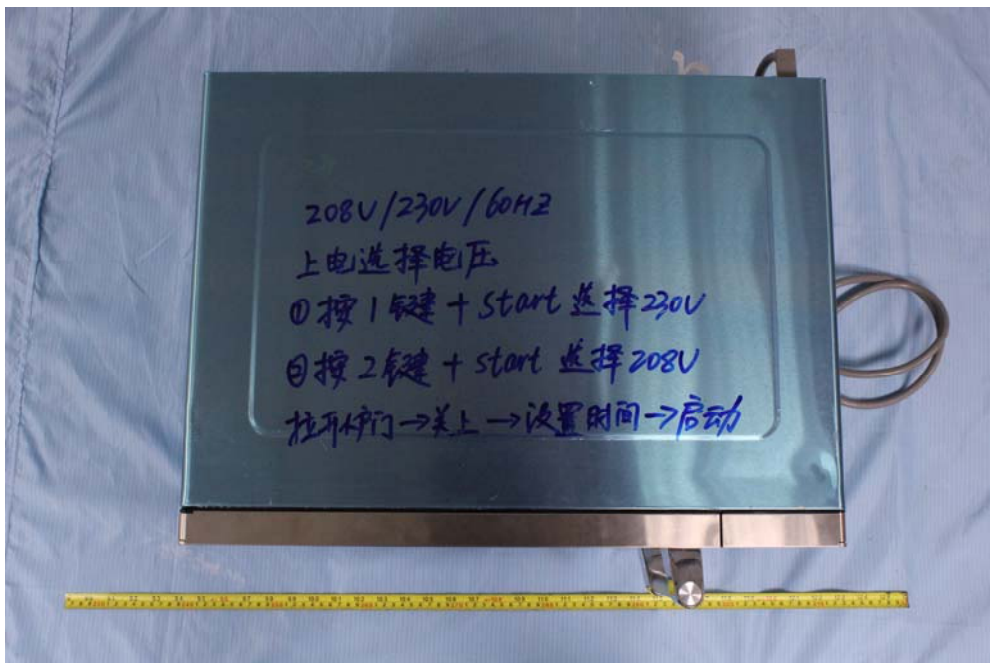 208V/230V/60HZ
上电选择电压
①按1键+Start选择230V
②按2键+start选择208V
拉开炉门→关上→设置时间→启动